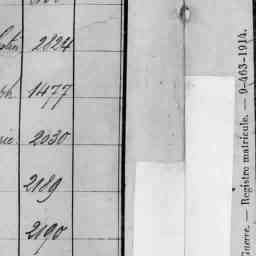 2824
1477
2030
2189
2190
Guerre. — Registre matricule. — 9-463-1914.